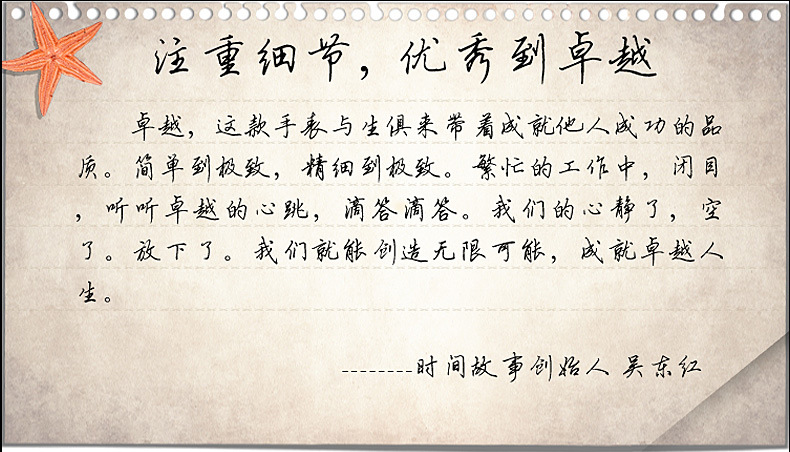 注重细节，优秀到卓越
卓越，这款手表与生俱来带着成就他人成功的品
质。简单到极致，精细到极致。繁忙的工作中，闭目
，听听卓越的心跳，滴答滴答。我们的心静了，空
了。放下了。我们就能创造无限可能，成就卓越人
生。
--------时间故事创始人 吴东红